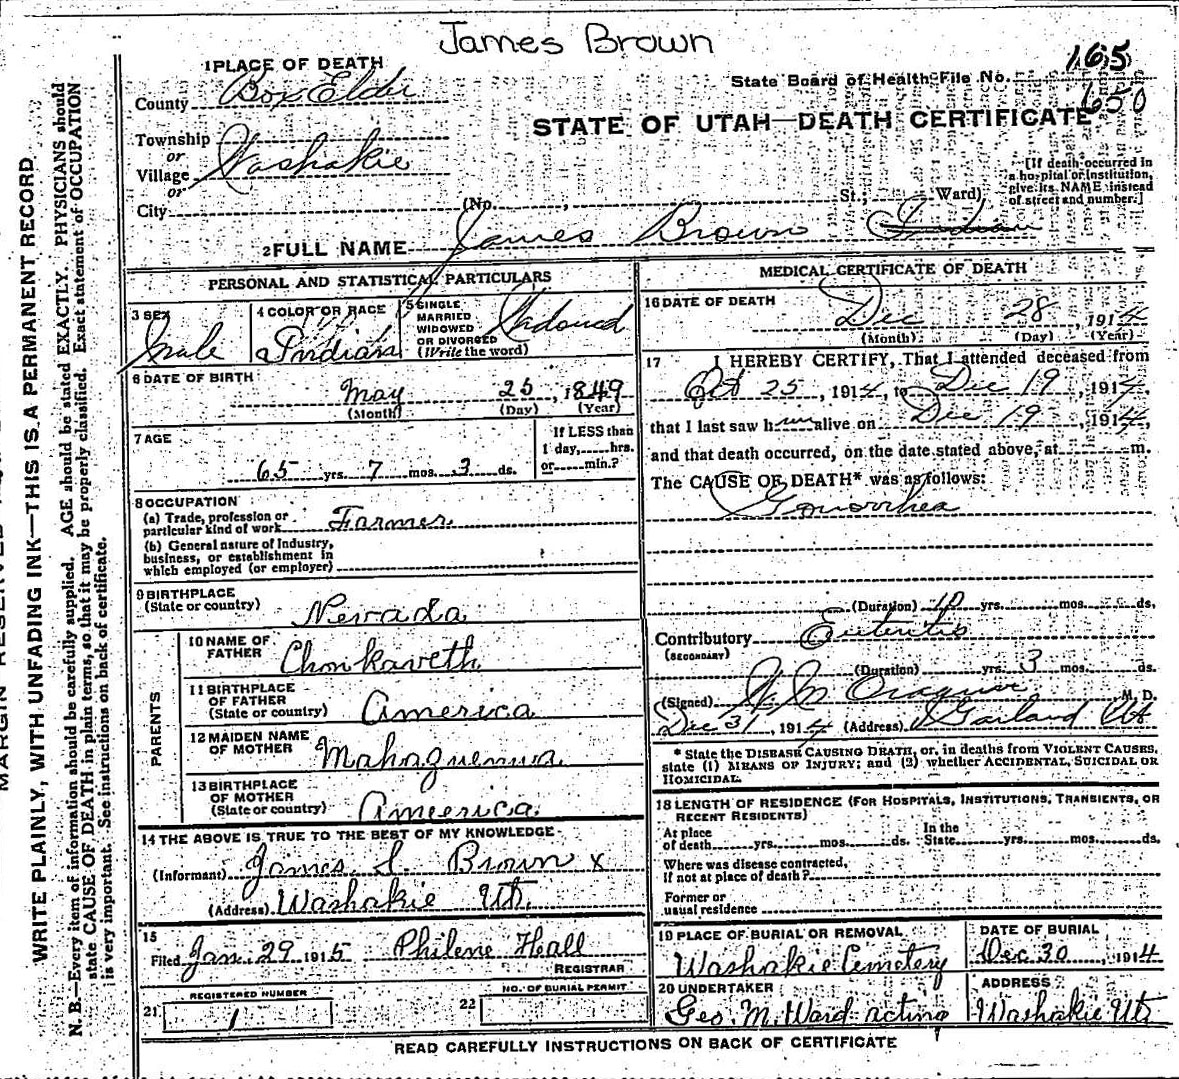 James Brown
165
650
1 PLACE OF DEATH
State Board of Health File No.
County Box Elder
STATE OF UTAH—DEATH CERTIFICATE
Township
or
Village Washakie
or
City (No. , St.; Ward)
[If death occurred in
a hospital or institution,
give its NAME instead
of street and number.]
2 FULL NAME James Brown Indian
PERSONAL AND STATISTICAL PARTICULARS
3 SEX
Male
4 COLOR OR RACE
Indian
5 SINGLE
MARRIED
WIDOWED
OR DIVORCED
(Write the word)
6 DATE OF BIRTH
May 25, 1849
(Month) (Day) (Year)
7 AGE
65 yrs. 7 mos. 3 ds.
If LESS than
1 day, hrs.
or min.?
8 OCCUPATION
(a) Trade, profession or
particular kind of work Farmer
(b) General nature of Industry,
business, or establishment in
which employed (or employer)
9 BIRTHPLACE
(State or country) Nevada
PARENTS
10 NAME OF
FATHER Chonkaveth
11 BIRTHPLACE
OF FATHER
(State or country) America
12 MAIDEN NAME
OF MOTHER
13 BIRTHPLACE
OF MOTHER
(State or country) America
14 THE ABOVE IS TRUE TO THE BEST OF MY KNOWLEDGE
(Informant) James S. Brown x
(Address) Washakie Ut.
15
Filed Jan. 29 1915 Philene Hall
REGISTRAR
REGISTERED NUMBER
21 1
NO. OF BURIAL PERMIT
22
MEDICAL CERTIFICATE OF DEATH
16 DATE OF DEATH
Dec 28, 1914
(Month) (Day) (Year)
17 I HEREBY CERTIFY, That I attended deceased from
Oct 25, 1914, to Dec 19, 1914,
that I last saw him alive on Dec 19, 1914,
and that death occurred, on the date stated above, at m.
The CAUSE OF DEATH* was as follows:
Gonorrhea
(Duration) 10 yrs. mos. ds.
Contributory Enteritis
(SECONDARY)
(Duration) yrs. 3 mos. ds.
(Signed) M. D.
Dec 31, 1914 (Address) Garland Ut
* State the DISEASE CAUSING DEATH, or, in deaths from VIOLENT CAUSES,
state (1) MEANS OF INJURY; and (2) whether ACCIDENTAL, SUICIDAL OR
HOMICIDAL.
18 LENGTH OF RESIDENCE (FOR HOSPITALS, INSTITUTIONS, TRANSIENTS, OR
RECENT RESIDENTS)
At place
of death yrs. mos. ds.
In the
State yrs. mos. ds.
Where was disease contracted,
if not at place of death?
Former or
usual residence
19 PLACE OF BURIAL OR REMOVAL
Washakie Cemetery
DATE OF BURIAL
Dec 30, 1914
20 UNDERTAKER
Geo. M. Ward acting
ADDRESS
Washakie Ut
READ CAREFULLY INSTRUCTIONS ON BACK OF CERTIFICATE
WRITE PLAINLY, WITH UNFADING INK—THIS IS A PERMANENT RECORD
N. B.—Every item of information should be carefully supplied. AGE should be stated EXACTLY. PHYSICIANS should
state CAUSE OF DEATH in plain terms, so that it may be properly classified. Exact statement of OCCUPATION
is very important. See instructions on back of certificate.